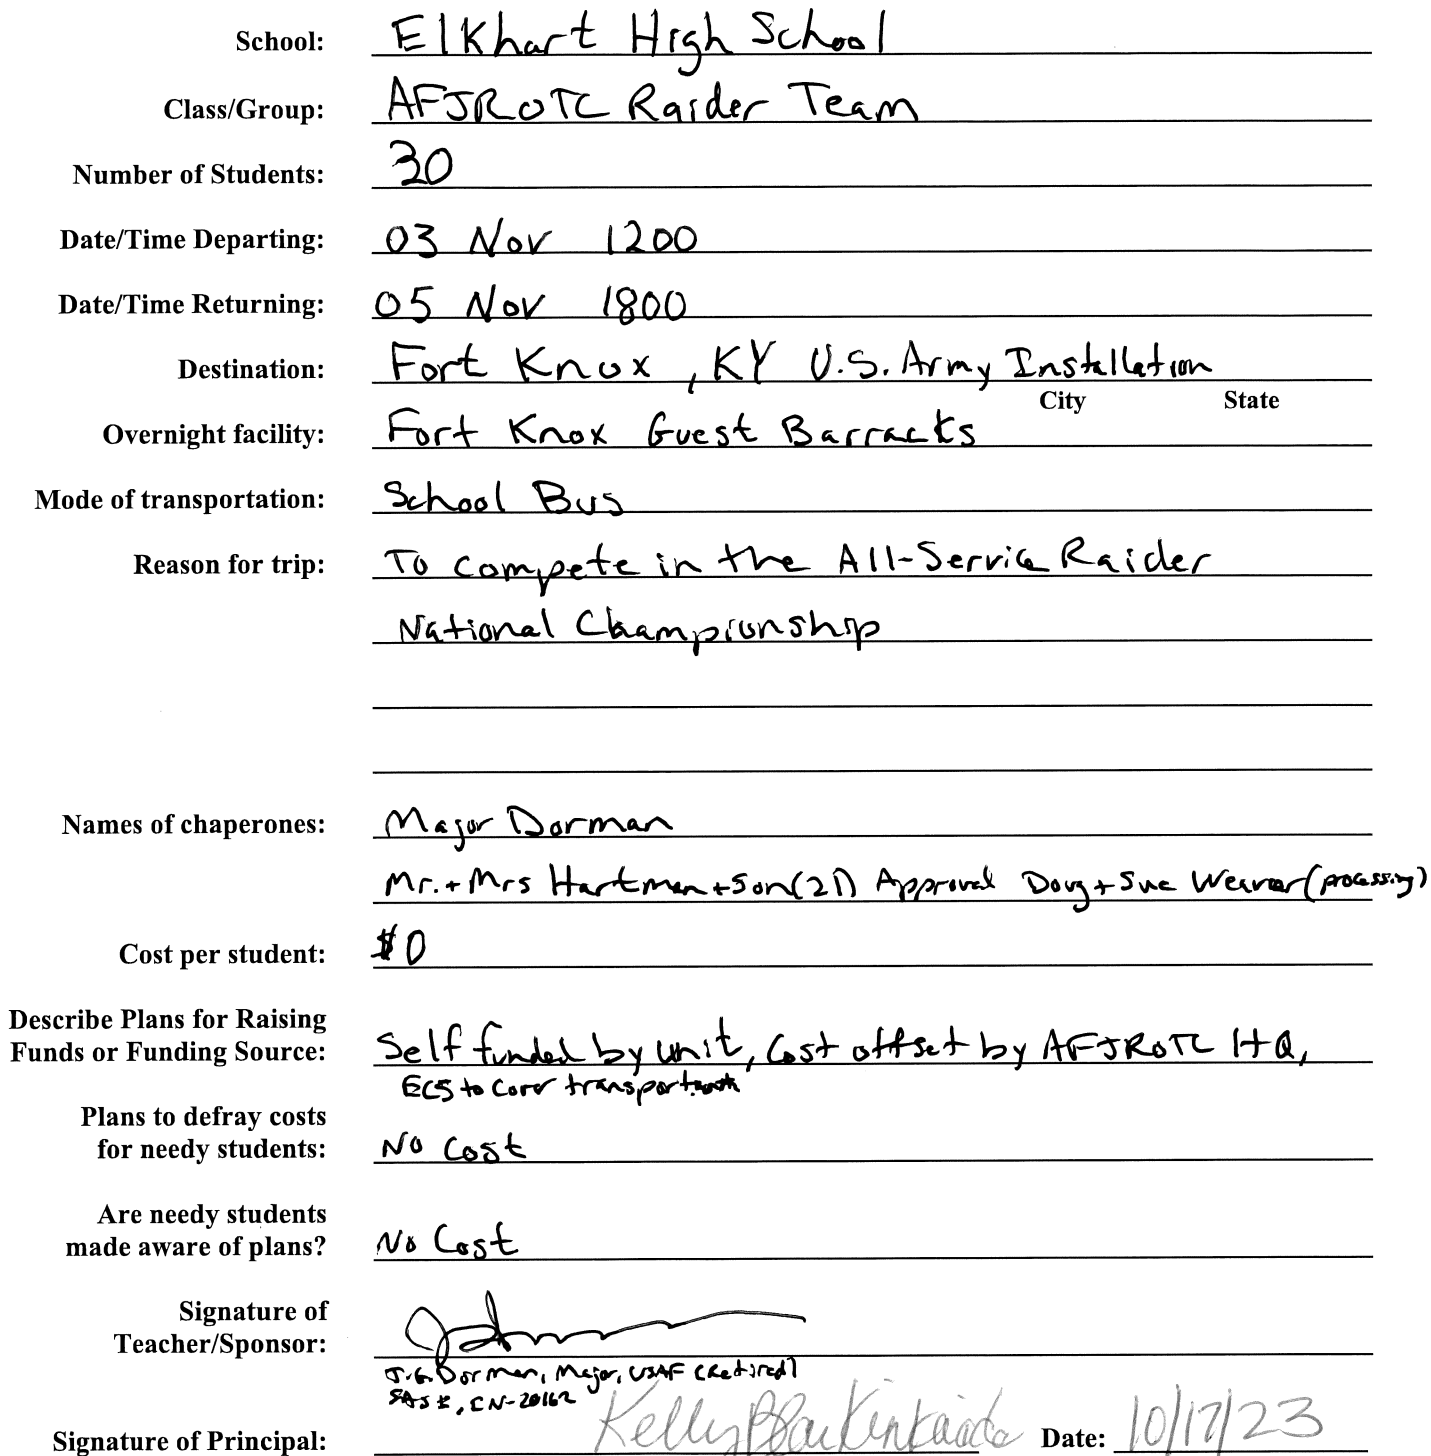 School: Elkhart High School
Class/Group: AFJROTC Raider Team
Number of Students: 30
Date/Time Departing: 03 Nov 1200
Date/Time Returning: 05 Nov 1800
Destination: Fort Knox, KY U.S. Army Installation
City State
Overnight facility: Fort Knox Guest Barracks
Mode of transportation: School Bus
Reason for trip: To compete in the All-Service Raider
National Championship
Names of chaperones: Major Dorman
Mr. + Mrs Hartman + Son (21) Approval Doug + Sue Weaver (processing)
Cost per student: $0
Describe Plans for Raising
Funds or Funding Source: Self funded by unit, Cost offset by AFJROTC HQ,
ECS to cover transportation
Plans to defray costs
for needy students: No Cost
Are needy students
made aware of plans? No Cost
Signature of
Teacher/Sponsor:
J.G. Dorman, Major, USAF (Retired)
SASI, IN-20162
Signature of Principal: Kelly Date: 10/17/23